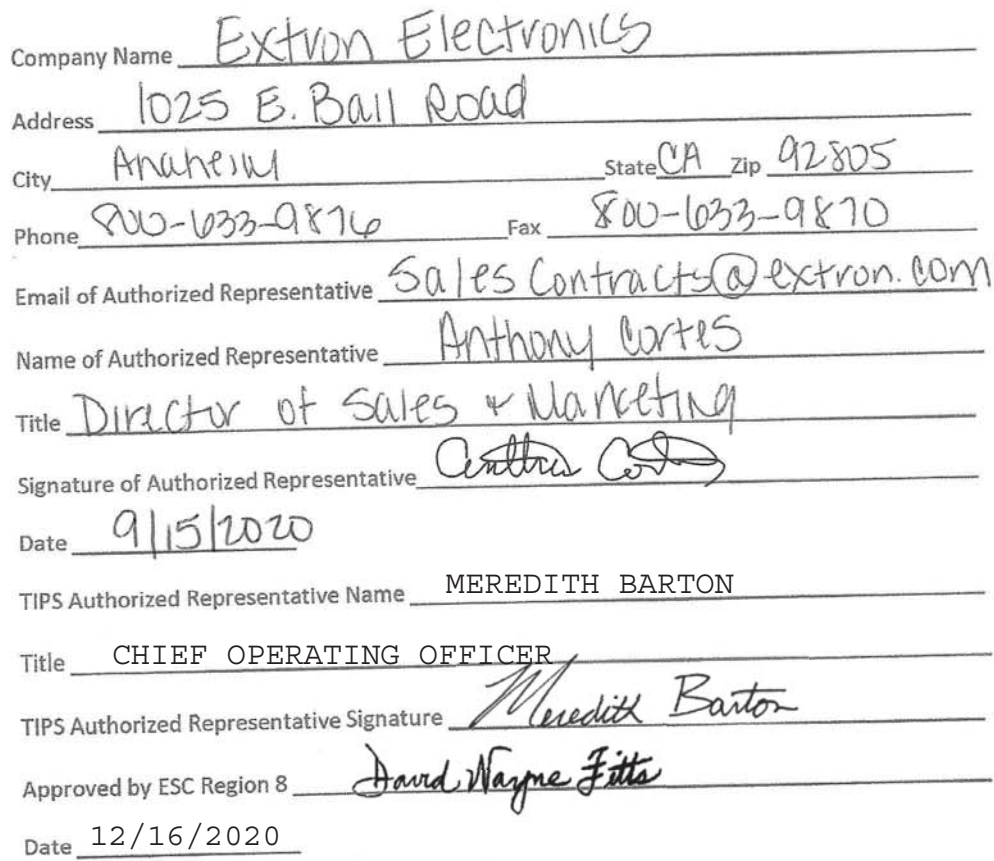 Company Name Extron Electronics
Address 1025 E. Ball Road
City Anaheim State CA Zip 92805
Phone 800-633-9876 Fax 800-633-9870
Email of Authorized Representative Sales Contracts@extron.com
Name of Authorized Representative Anthony Cortes
Title Director of Sales & Marketing
Signature of Authorized Representative
Date 9/15/2020
TIPS Authorized Representative Name MEREDITH BARTON
Title CHIEF OPERATING OFFICER
TIPS Authorized Representative Signature Meredith Barton
Approved by ESC Region 8 David Wayne Fitts
Date 12/16/2020